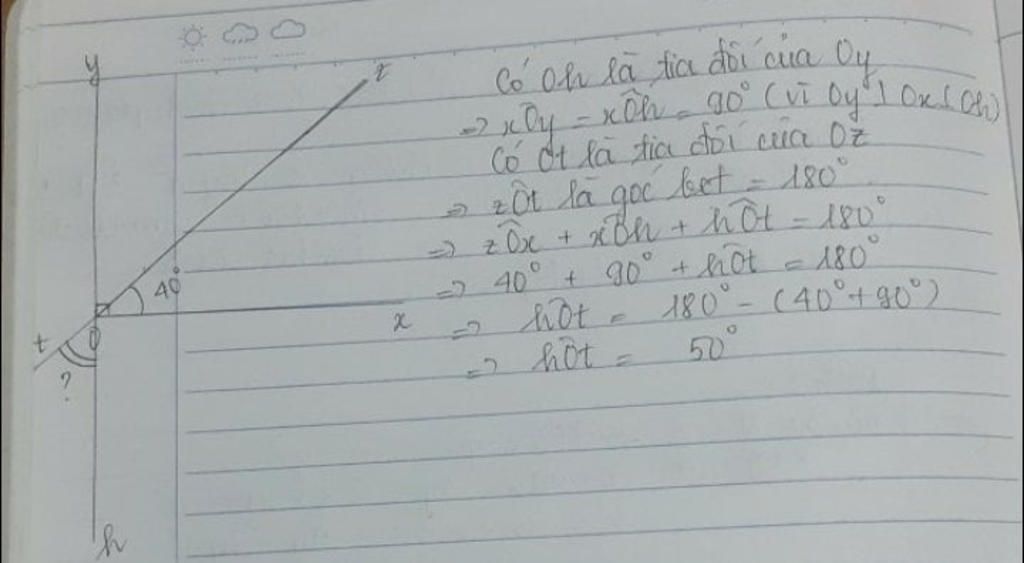 y
z
40°
x
O
t
?
h
Có Oh là tia đối của Oy
=> xÔy = xÔh = 90° (vì Oy ⊥ Ox ⊥ Oh)
Có Ot là tia đối của Oz
=> zÔt là góc bẹt = 180°
=> zÔx + xÔh + hÔt = 180°
=> 40° + 90° + hÔt = 180°
=> hÔt = 180° - (40° + 90°)
=> hÔt = 50°